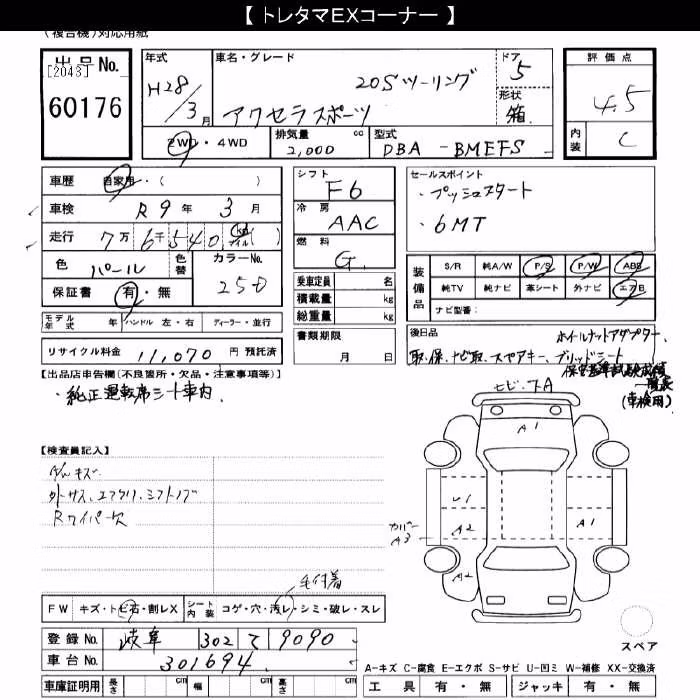 【 トレタマEXコーナー 】
(複合機)対応用紙
出品No.
[2043]
60176
年式
H28/3月
車名・グレード
20Sツーリング
アクセラスポーツ
ドア
5
形状
箱
評価点
4.5
内装
C
2WD・4WD
排気量 cc
2,000
型式
DBA-BMEFS
車歴 自家用・( )
車検 R9年 3月
走行 7万6千540 km マイル( )
色 パール 色替 カラーNo. 25D
保証書 有・無
シフト
F6
冷房
AAC
燃料
G
乗車定員 名
積載量 kg
総重量 kg
セールスポイント
・プッシュスタート
・6MT
装備品
S/R 純A/W P/S P/W ABS
純TV 純ナビ 革シート 外ナビ エアB
ナビ型番:
モデル年式 年 ハンドル 左・右 ディーラー・並行
リサイクル料金 11,070 円 預託済
書類期限
月 日
後日品
ホイルナットアダプター
取.保.ナビ取.スペアキー.ブリッドシート
保安基準試験成績
一覧表
(車検用)
【出品店申告欄(不良箇所・欠品・注意事項等)】
・純正運転席シート車内
【検査員記入】
ダッシュキズ
外サス.エアクリ.シフトノブ
Rワイパー欠
A1
U1
A2
A1
カバー
A3
A2
毛付着
FW キズ・トビ石・割レX シート内装 コゲ・穴・汚レ・シミ・破レ・スレ
登録No. 岐阜 302 て 9090
車台No. 301694
車庫証明用 長さ cm 幅 cm 高さ cm
スペア
A-キズ C-腐食 E-エクボ S-サビ U-凹ミ W-補修 XX-交換済
工具 有・無 ジャッキ 有・無